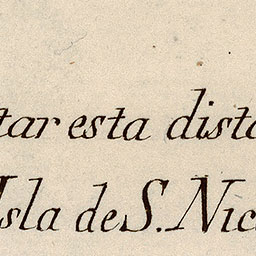 tar esta dista
Isla de S. Nic